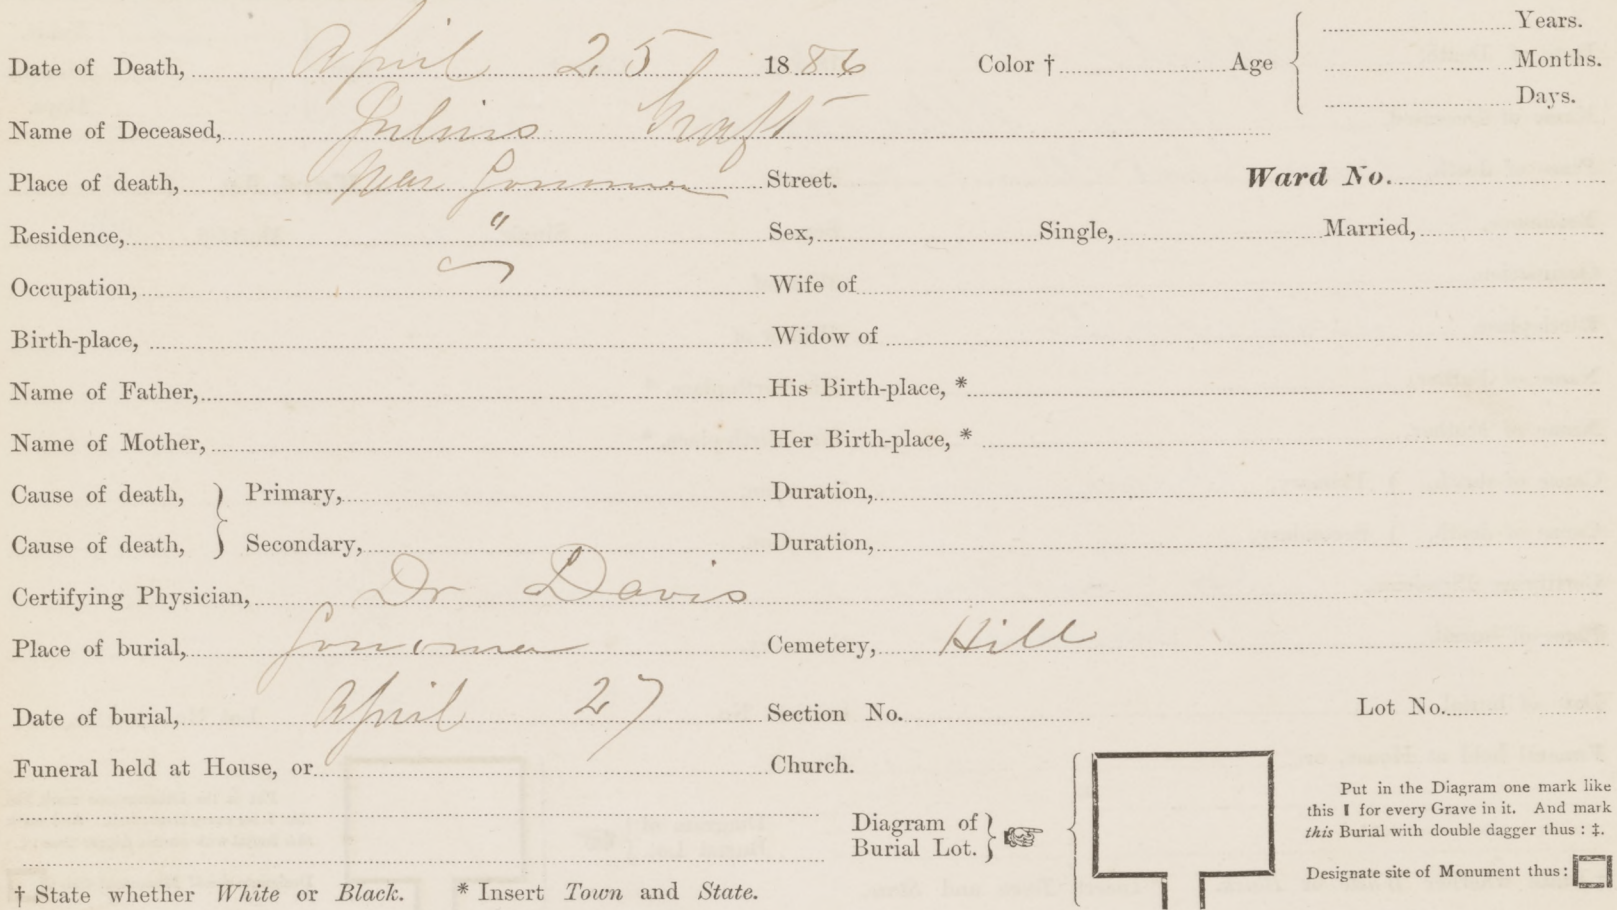 Years.
Date of Death, April 25 1886 Color † Age Months.
Days.
Name of Deceased, Julius Kraft
Place of death, Near Sonoma Street. Ward No.
Residence, " Sex, Single, Married,
Occupation, Wife of
Birth-place, Widow of
Name of Father, His Birth-place, *
Name of Mother, Her Birth-place, *
Cause of death, } Primary, Duration,
Cause of death, } Secondary, Duration,
Certifying Physician, Dr Davis
Place of burial, Sonoma Cemetery, Hill
Date of burial, April 27 Section No. Lot No.
Funeral held at House, or Church.
Diagram of
Burial Lot.
Put in the Diagram one mark like
this I for every Grave in it. And mark
this Burial with double dagger thus : ‡.
Designate site of Monument thus :
† State whether White or Black. * Insert Town and State.